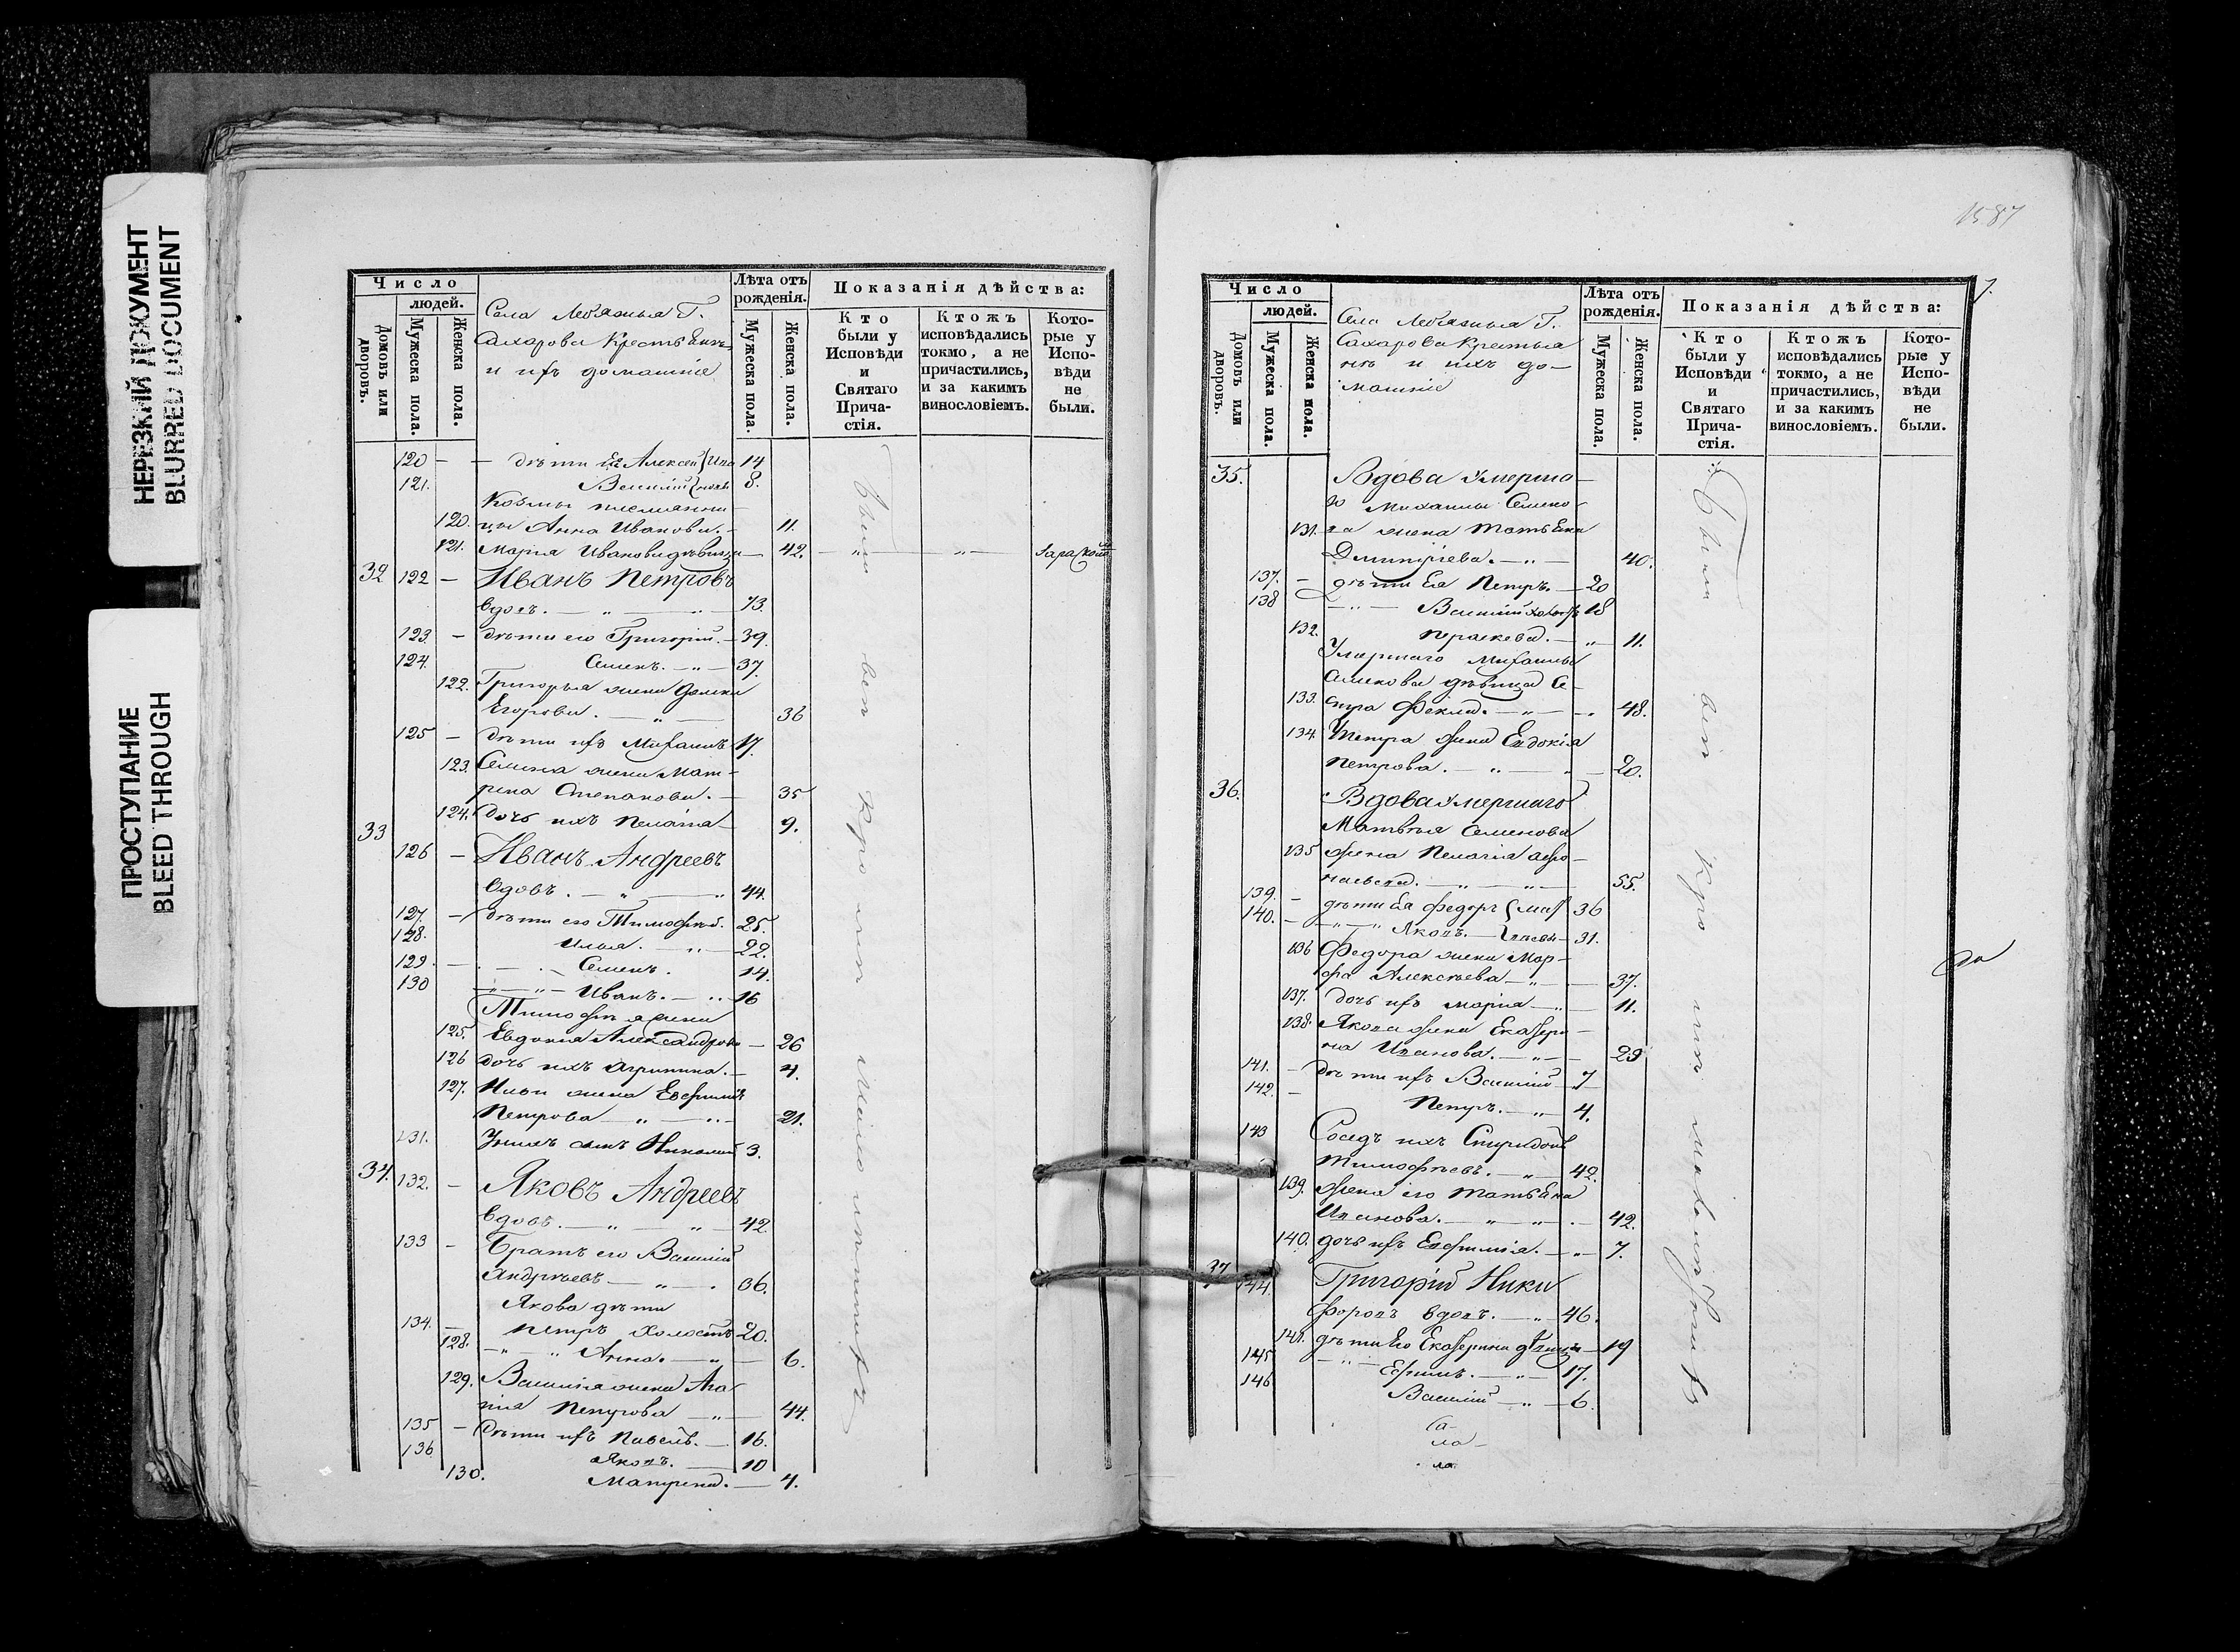 НЕРЕЗКИЙ ДОКУМЕНТ
BLURRED DOCUMENT
ПРОСТУПАНИЕ
BLEED THROUGH
Число
людей.
Домовъ или дворовъ.
Мужеска пола.
Женска пола.
Села Г.
Сахарова Крестьянъ
и ихъ домашніе
Лѣта отъ рожденія.
Мужеска пола.
Женска пола.
Показанія дѣйства:
Кто были у Исповѣди и Святаго Прича-стія.
Ктожъ исповѣдались токмо, а не причастились, и за какимъ винословіемъ.
Кото-рые у Испо-вѣди не были.
120 — дѣти Ея Алексей 14
121. Василий 8.
Козмы племянни-
120. цы Анна Иванова. — 11.
121. Марія Иванова дѣвица — 42.
32 122 — Иванъ Петровъ
вдов. — 73.
123 — дѣти его Григорій. — 39.
124. Семенъ. — 37.
122. Григорья жена Домна
Егорова. — 36
125 — дѣти ихъ Михаилъ 17.
123. Семена жена Мат-
рена Степанова. — 35
124. дочь ихъ Пелагія — 9.
33 126 — Иванъ Андреевъ
вдовъ. — 44.
127. — дѣти его Тимофей. 25.
128. Илья. — 22.
129. — Семенъ. 14.
130 Иванъ. — 16
Тимофея жена
125. Евдокия Александрова — 26
126 дочь ихъ Агрипина. — 4.
127. Ильи жена Евфимия
Петрова — 21.
131. У нихъ сынъ Николай 3.
34. 132. — Яковъ Андреевъ
вдовъ. — 42
133 — Братъ его Василий
Андреевъ — 36.
Якова дѣти
134. — Петръ Холостъ 20.
128. Анна. — 6.
129. Василія жена Ага-
пія Петрова — 44.
135 — дѣти ихъ Павелъ. — 16.
136 Яковъ. — 10
130. Матрена. — 4.
Были вси Кро
1587
7.
Число
людей.
Домовъ или дворовъ.
Мужеска пола.
Женска пола.
Села Г.
Сахарова Крестья
нъ и ихъ до-
машніе
Лѣта отъ рожденія.
Мужеска пола.
Женска пола.
Показанія дѣйства:
Кто были у Исповѣди и Святаго Прича-стія.
Ктожъ исповѣдались токмо, а не причастились, и за какимъ винословіемъ.
Кото-рые у Испо-вѣди не были.
35. Вдова умерша-
го Михаилы Семено-
131. ва жена Татьяна
Дмитріева. — 40.
137. — дѣти Ея Петръ. — 20
138 — Василий холостъ 18
132. Параскева. — 11.
Умершаго Михаилы
Семенова дѣвица се-
133. стра Фекла. — 48.
134. Петра жена Евдокія
Петрова. — 20.
36. Вдова умершаго
Матвѣя Семенова
135 жена Пелагія Афо-
насьева. — 55.
139. — дѣти Ея Федоръ 36
140. — Яковъ. — 31.
136 Федора жена Мар-
фа Алексѣева — 37.
137. дочь ихъ Марія — 11.
138. Якова жена Екатери-
на Иванова. — 29
141. — дѣти ихъ Василий — 7
142. — Петръ. — 4.
143 Соседъ ихъ Спиридонъ
Тимофѣевъ. — 42.
139. жена его Татьяна
Иванова. — 42.
140. дочь ихъ Евфимія. — 7.
37 144. Григорій Ники
форовъ вдовъ. — 46.
141. дѣти Его Екатерина дѣвица — 19
145 Ефимъ. — 17.
146 Василий — 6.
Были вси Кро
са-
ла-
ла